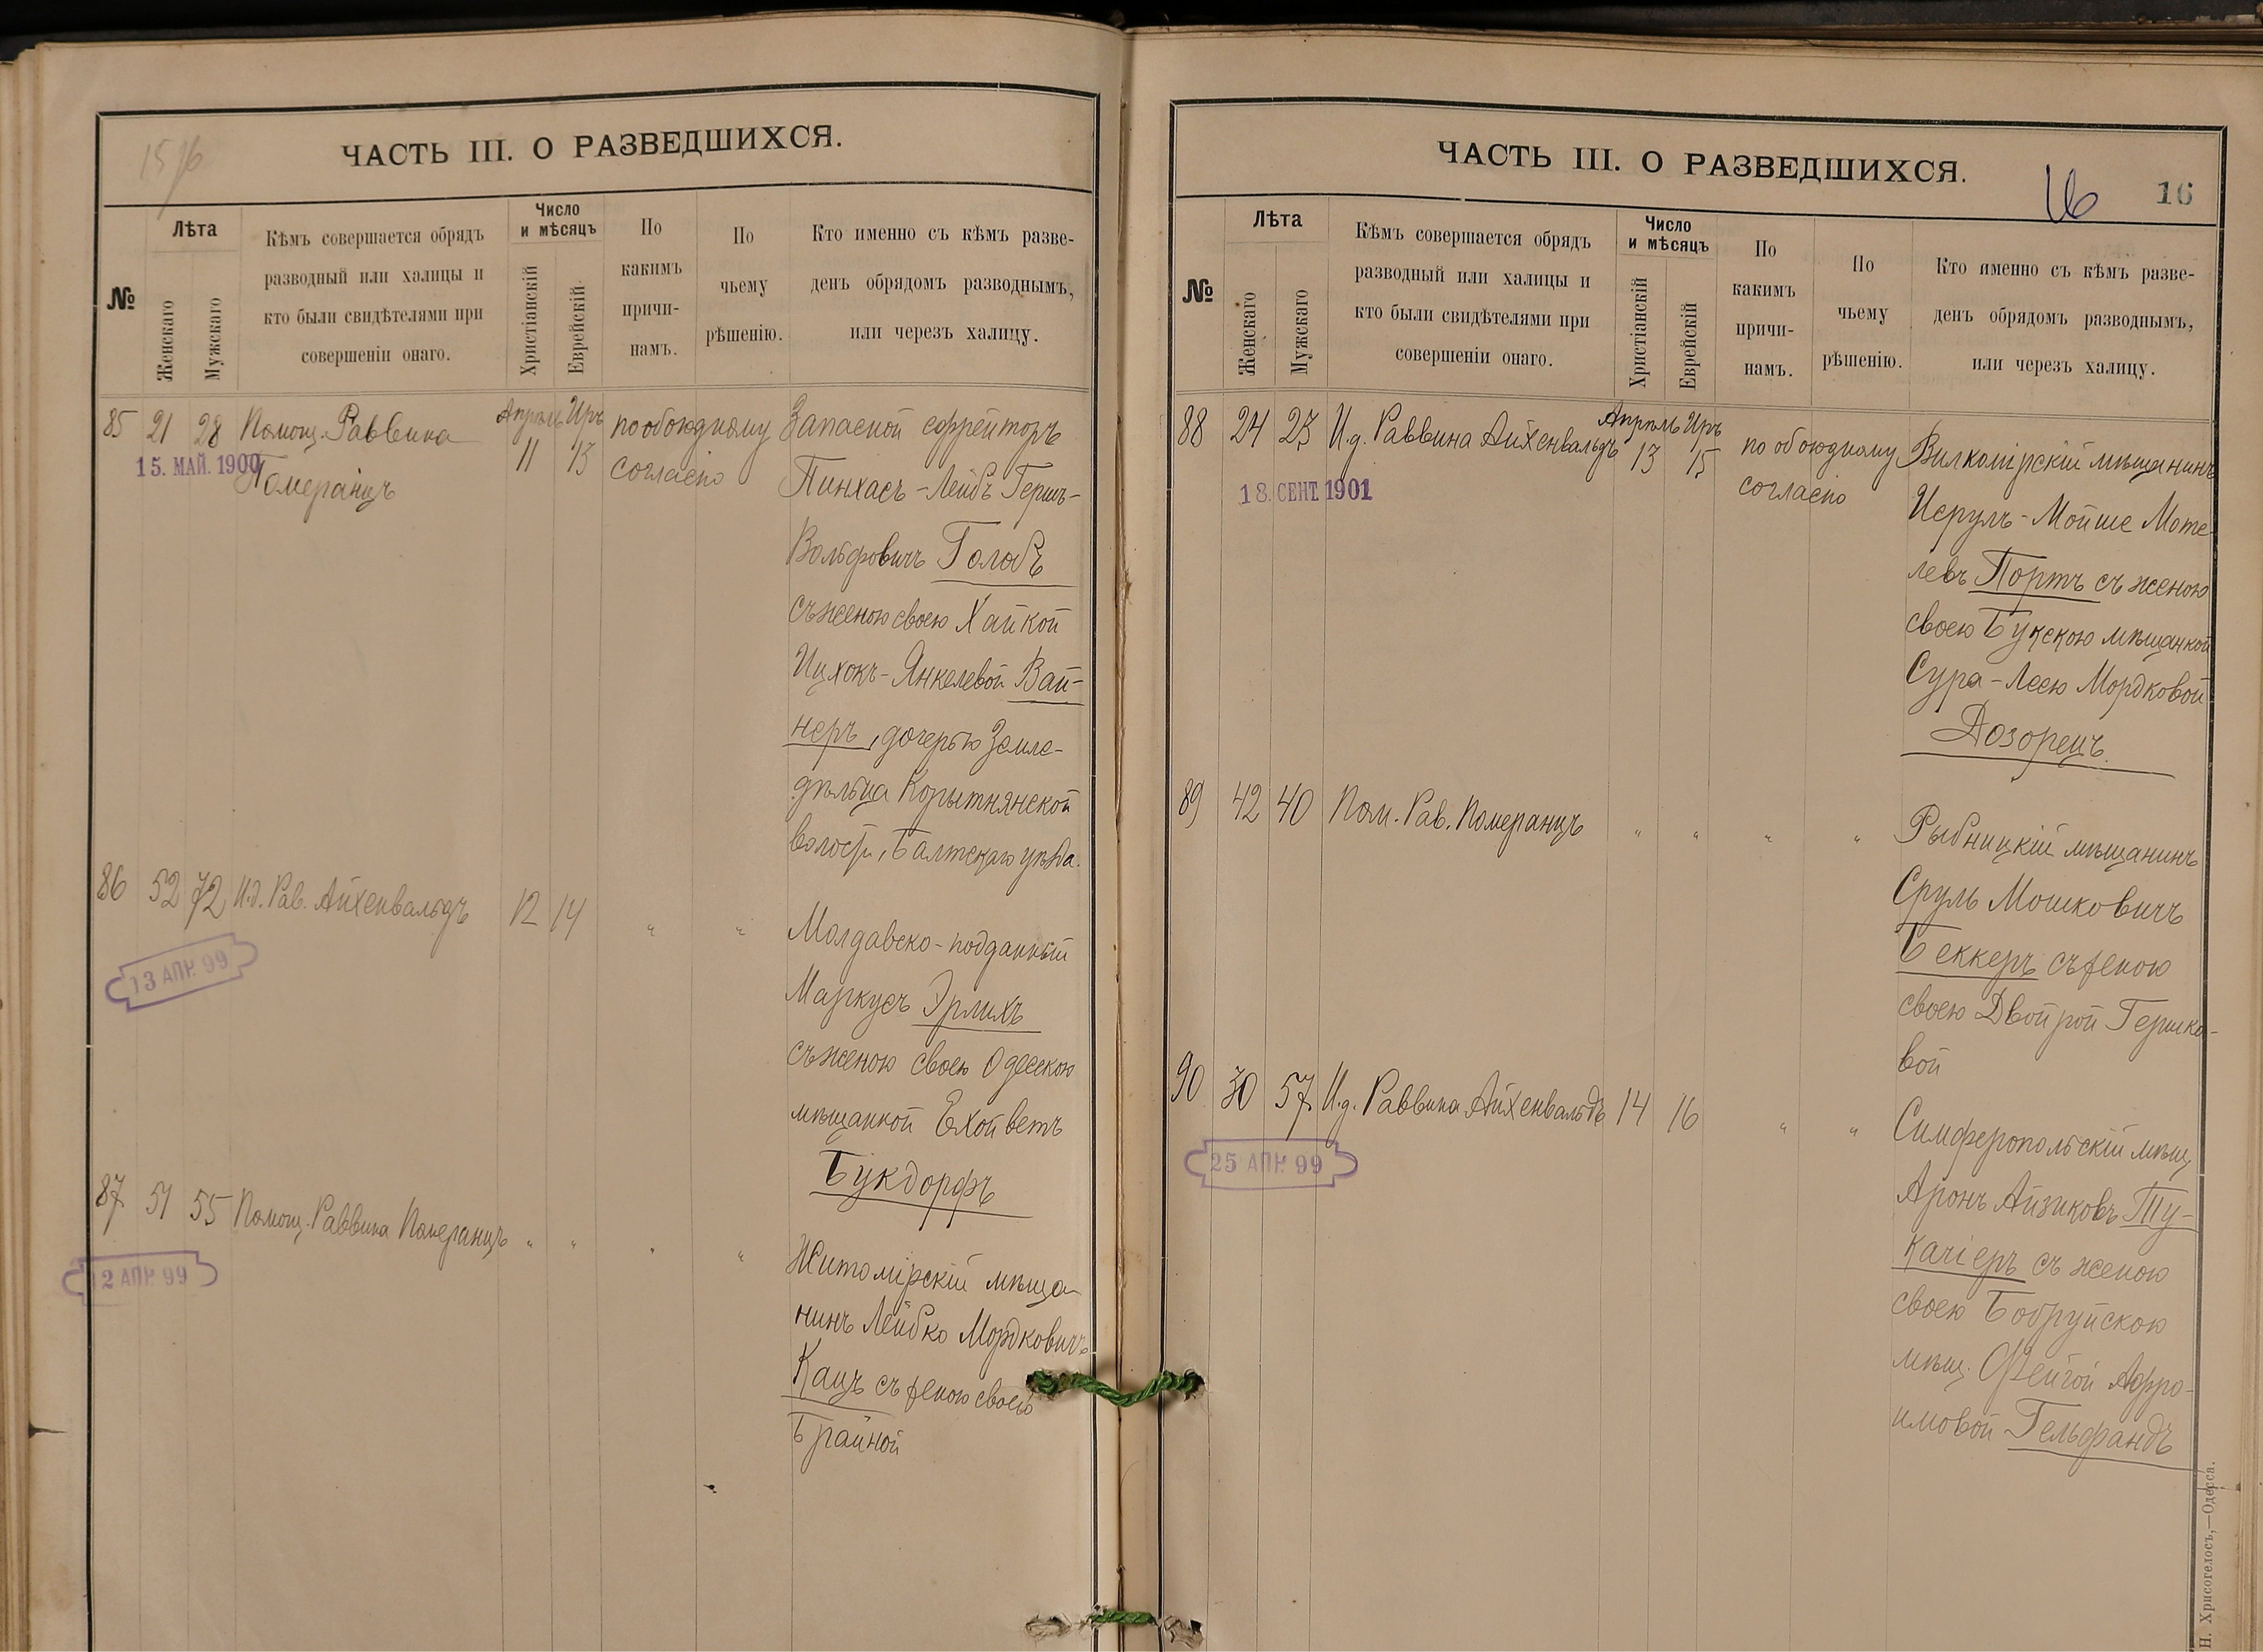 15/16
ЧАСТЬ III. О РАЗВЕДШИХСЯ.
№
Лѣта
Женскаго
Мужскаго
Кѣмъ совершается обрядъ
разводный или халицы и
кто были свидѣтелями при
совершеніи онаго.
Число
и мѣсяцъ
Христіанскій
Еврейскій
По
какимъ
причи-
намъ.
По
чьему
рѣшенію.
Кто именно съ кѣмъ разве-
денъ обрядомъ разводнымъ,
или черезъ халицу.
85 21 28 Помощ. Раввина Апрѣль Иръ по обоюдному Запасной ефрейторъ
15. МАЙ. 1900 Померанцъ 11 13 согласію Пинхасъ-Лейбъ Гершъ-
Вольфовичъ Голобъ
съ женою своею Хайкой
Ицхокъ-Янкелевой Вай-
неръ, дочерью Земле-
дѣльца Корытнянской
волости, Балтскаго уѣзда.
86 52 72 И.д. Рав. Айхенвальдъ 12 14 " " Молдавско-подданный
13 АПР. 99
Маркусъ Эрлихъ
съ женою своею Одесскою
мѣщанкой Ехойветъ
Букдорфъ
87 51 55 Помощ. Раввина Померанцъ " " " " Житомірскій мѣща-
12 АПР. 99
нинъ Лейбко Мордковичъ
Кацъ съ женою своею
Брайной
ЧАСТЬ III. О РАЗВЕДШИХСЯ.
16 16
№
Лѣта
Женскаго
Мужскаго
Кѣмъ совершается обрядъ
разводный или халицы и
кто были свидѣтелями при
совершеніи онаго.
Число
и мѣсяцъ
Христіанскій
Еврейскій
По
какимъ
причи-
намъ.
По
чьему
рѣшенію.
Кто именно съ кѣмъ разве-
денъ обрядомъ разводнымъ,
или черезъ халицу.
88 24 23 И.д. Раввина Айхенвальдъ Апрѣль Иръ 13 15 по обоюдному Вилкомірскій мѣщанинъ
18. СЕНТ. 1901 согласію Исрулъ-Мойше Моте-
левъ Портъ съ женою
своею Букскою мѣщанкой
Сура-Леею Мордковой
Дозорецъ.
89 42 40 Пом. Рав. Померанцъ " " " " Рыбницкій мѣщанинъ
Сруль Мошковичъ
Беккеръ съ женою
своею Двойрой Гершко-
вой
90 30 57 И.д. Раввина Айхенвальдъ 14 16 " " Симферопольскій мѣщ.
25 АПР. 99
Аронъ Айзиковъ Ту-
качіеръ съ женою
своею Бобруйскою
мѣщ. Фейгой Афро-
имовой Гельфандъ
Н. Хрисогелосъ,—Одесса.